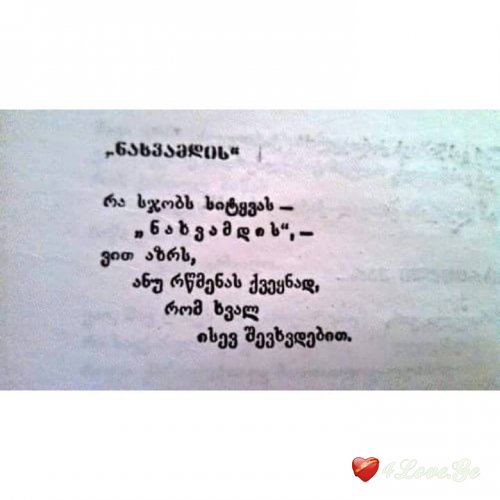 „ნახვამდის“
რა სჯობს სიტყვას —
„ნახვამდის“, —
ვით აზრს,
ანუ რწმენას ქვეყნად,
რომ ხვალ
ისევ შევხვდებით.
4Love.Ge